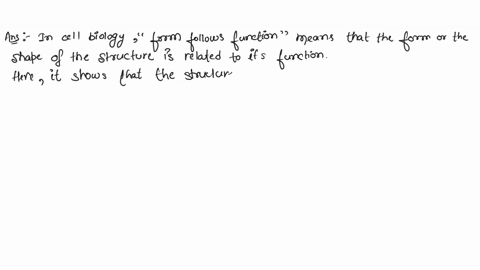 Ans:- In cell biology, "form follows function" means that the form or the
shape of the structure is related to it's function.
Here, it shows that the structur